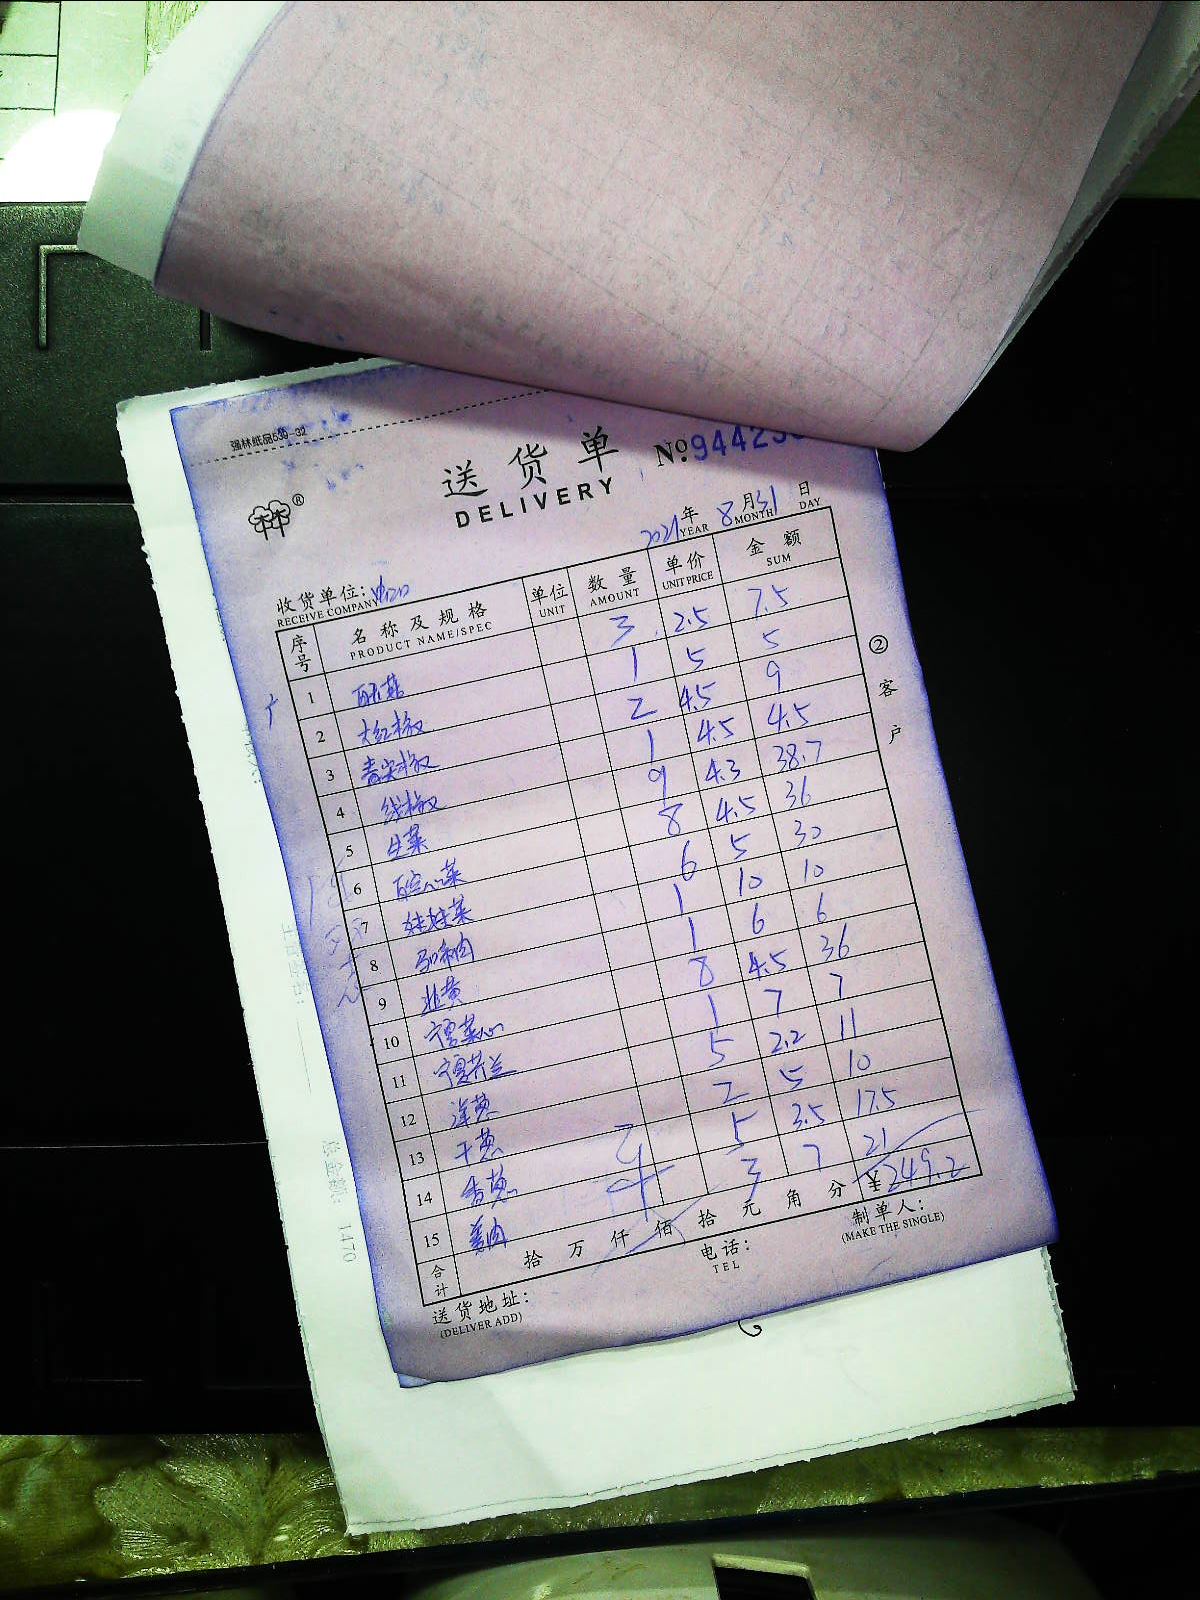 强林纸品539-32
送货单 №94423
DELIVERY
®
2021年 8月31日
YEAR MONTH DAY
收货单位:
RECEIVE COMPANY
序号 名称及规格 单位 数量 单价 金额
PRODUCT NAME/SPEC UNIT AMOUNT UNIT PRICE SUM
1 西芹 3 2.5 7.5
2 大红椒 1 5 5
3 青尖椒 2 4.5 9
4 线椒 1 4.5 4.5
5 生菜 9 4.3 38.7
6 空心菜 8 4.5 36
7 娃娃菜 6 5 30
8 1 10 10
9 韭黄 1 6 6
10 宁夏菜心 8 4.5 36
11 宁夏芥兰 1 7 7
12 洋葱 5 2.2 11
13 干葱 2 5 10
14 香葱 5 3.5 17.5
15 姜肉 3 7 21
合计 拾 万 仟 佰 拾 元 角 分 ¥249.2
送货地址: 电话: 制单人:
(DELIVER ADD) TEL (MAKE THE SINGLE)
②客户
总金额: 1470